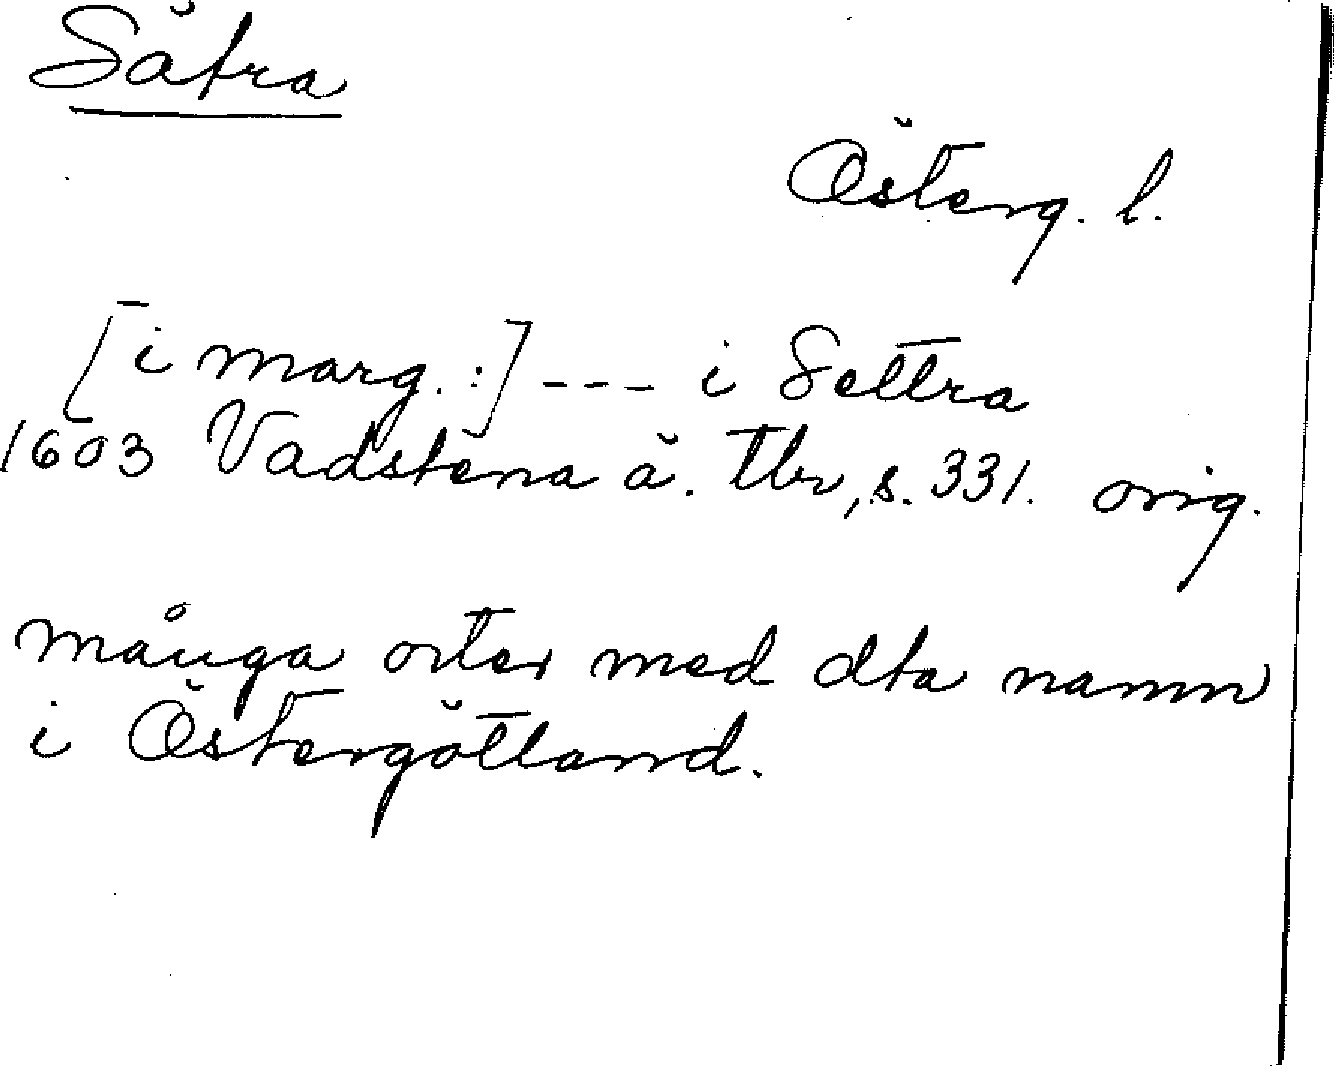 Sätra
Österg. l.
[i marg.:] --- i Settra
1603 Vadstena ä. Tbr, s. 331. orig.
många orter med dta namn
i Östergötland.